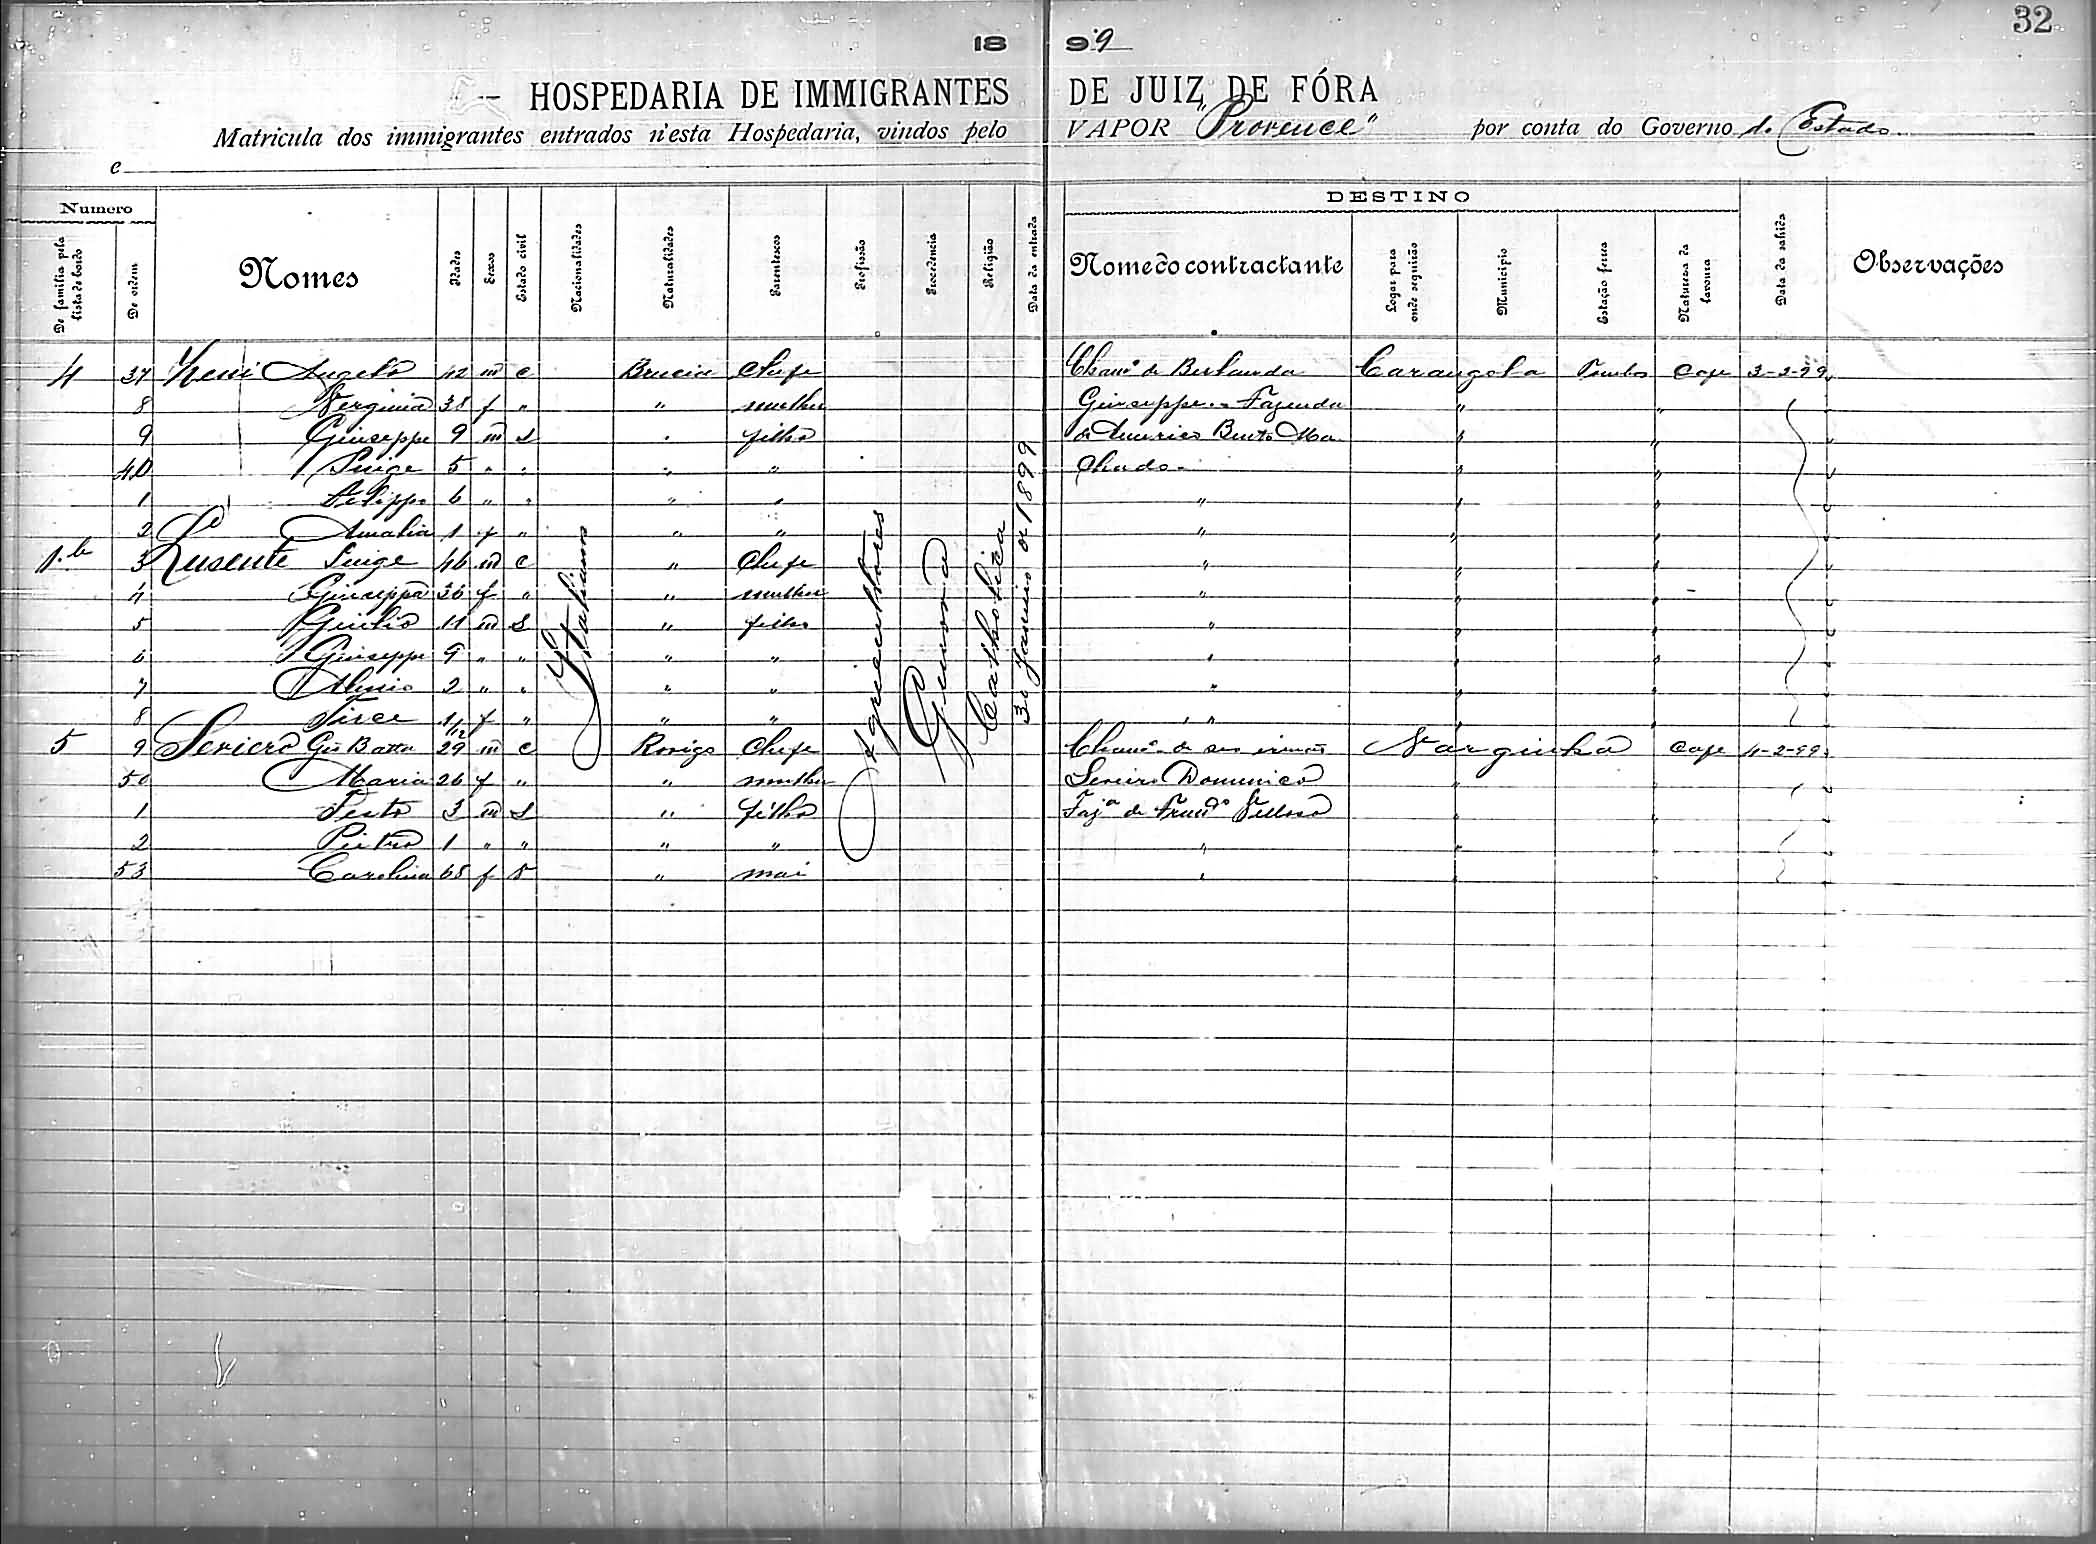 32
18 99
HOSPEDARIA DE IMMIGRANTES DE JUIZ DE FÓRA
Matricula dos immigrantes entrados n'esta Hospedaria, vindos pelo VAPOR "Provence" por conta do Governo do Estado
e
Numero DESTINO
De familia pela lista de bordo De ordem Nomes Idades Sexos Estado civil Nacionalidades Naturalidades Parentescos Profissão Procedencia Religião Data da entrada Nome do contractante Logar para onde seguirão Municipio Estação ferrea Natureza da lavoura Data da sahida Observações
4 37 Angelo 42 m c Brescia Chefe Chamo de Berlanda Carangola Tombos Cafe 3-2-99
8 Verginia 38 f " " mulher Giuseppe - Fazenda " "
9 Giuseppe 9 m s " filho de Americo Bento Ma " "
40 Luige 5 " " " " chado - " "
1 Filippo 6 " " " " " " "
2 Amalia 1 f " " " " " "
3 Lusente Luige 46 m c " Chefe " " "
4 Giuseppa 36 f " " mulher " " "
5 Giulio 11 m s " filho " " "
6 Giuseppe 9 " " " " " " "
7 2 " " " " " " "
8 Tirce 1/12 f " " " " " "
5 9 Seriero Gio Batta 29 m c Rovigo Chefe Chamo de seu irmão Varginha Cafe 4-2-99
50 Maria 26 f " " mulher Domenico " "
1 Sesto 3 m s " filho Faz.a de Velloso " "
2 Pietro 1 " " " " " " "
53 Carolina 68 f v " mai " " "
Italiana
Agricultores
Genova
Catholica
30 Janeiro de 1899